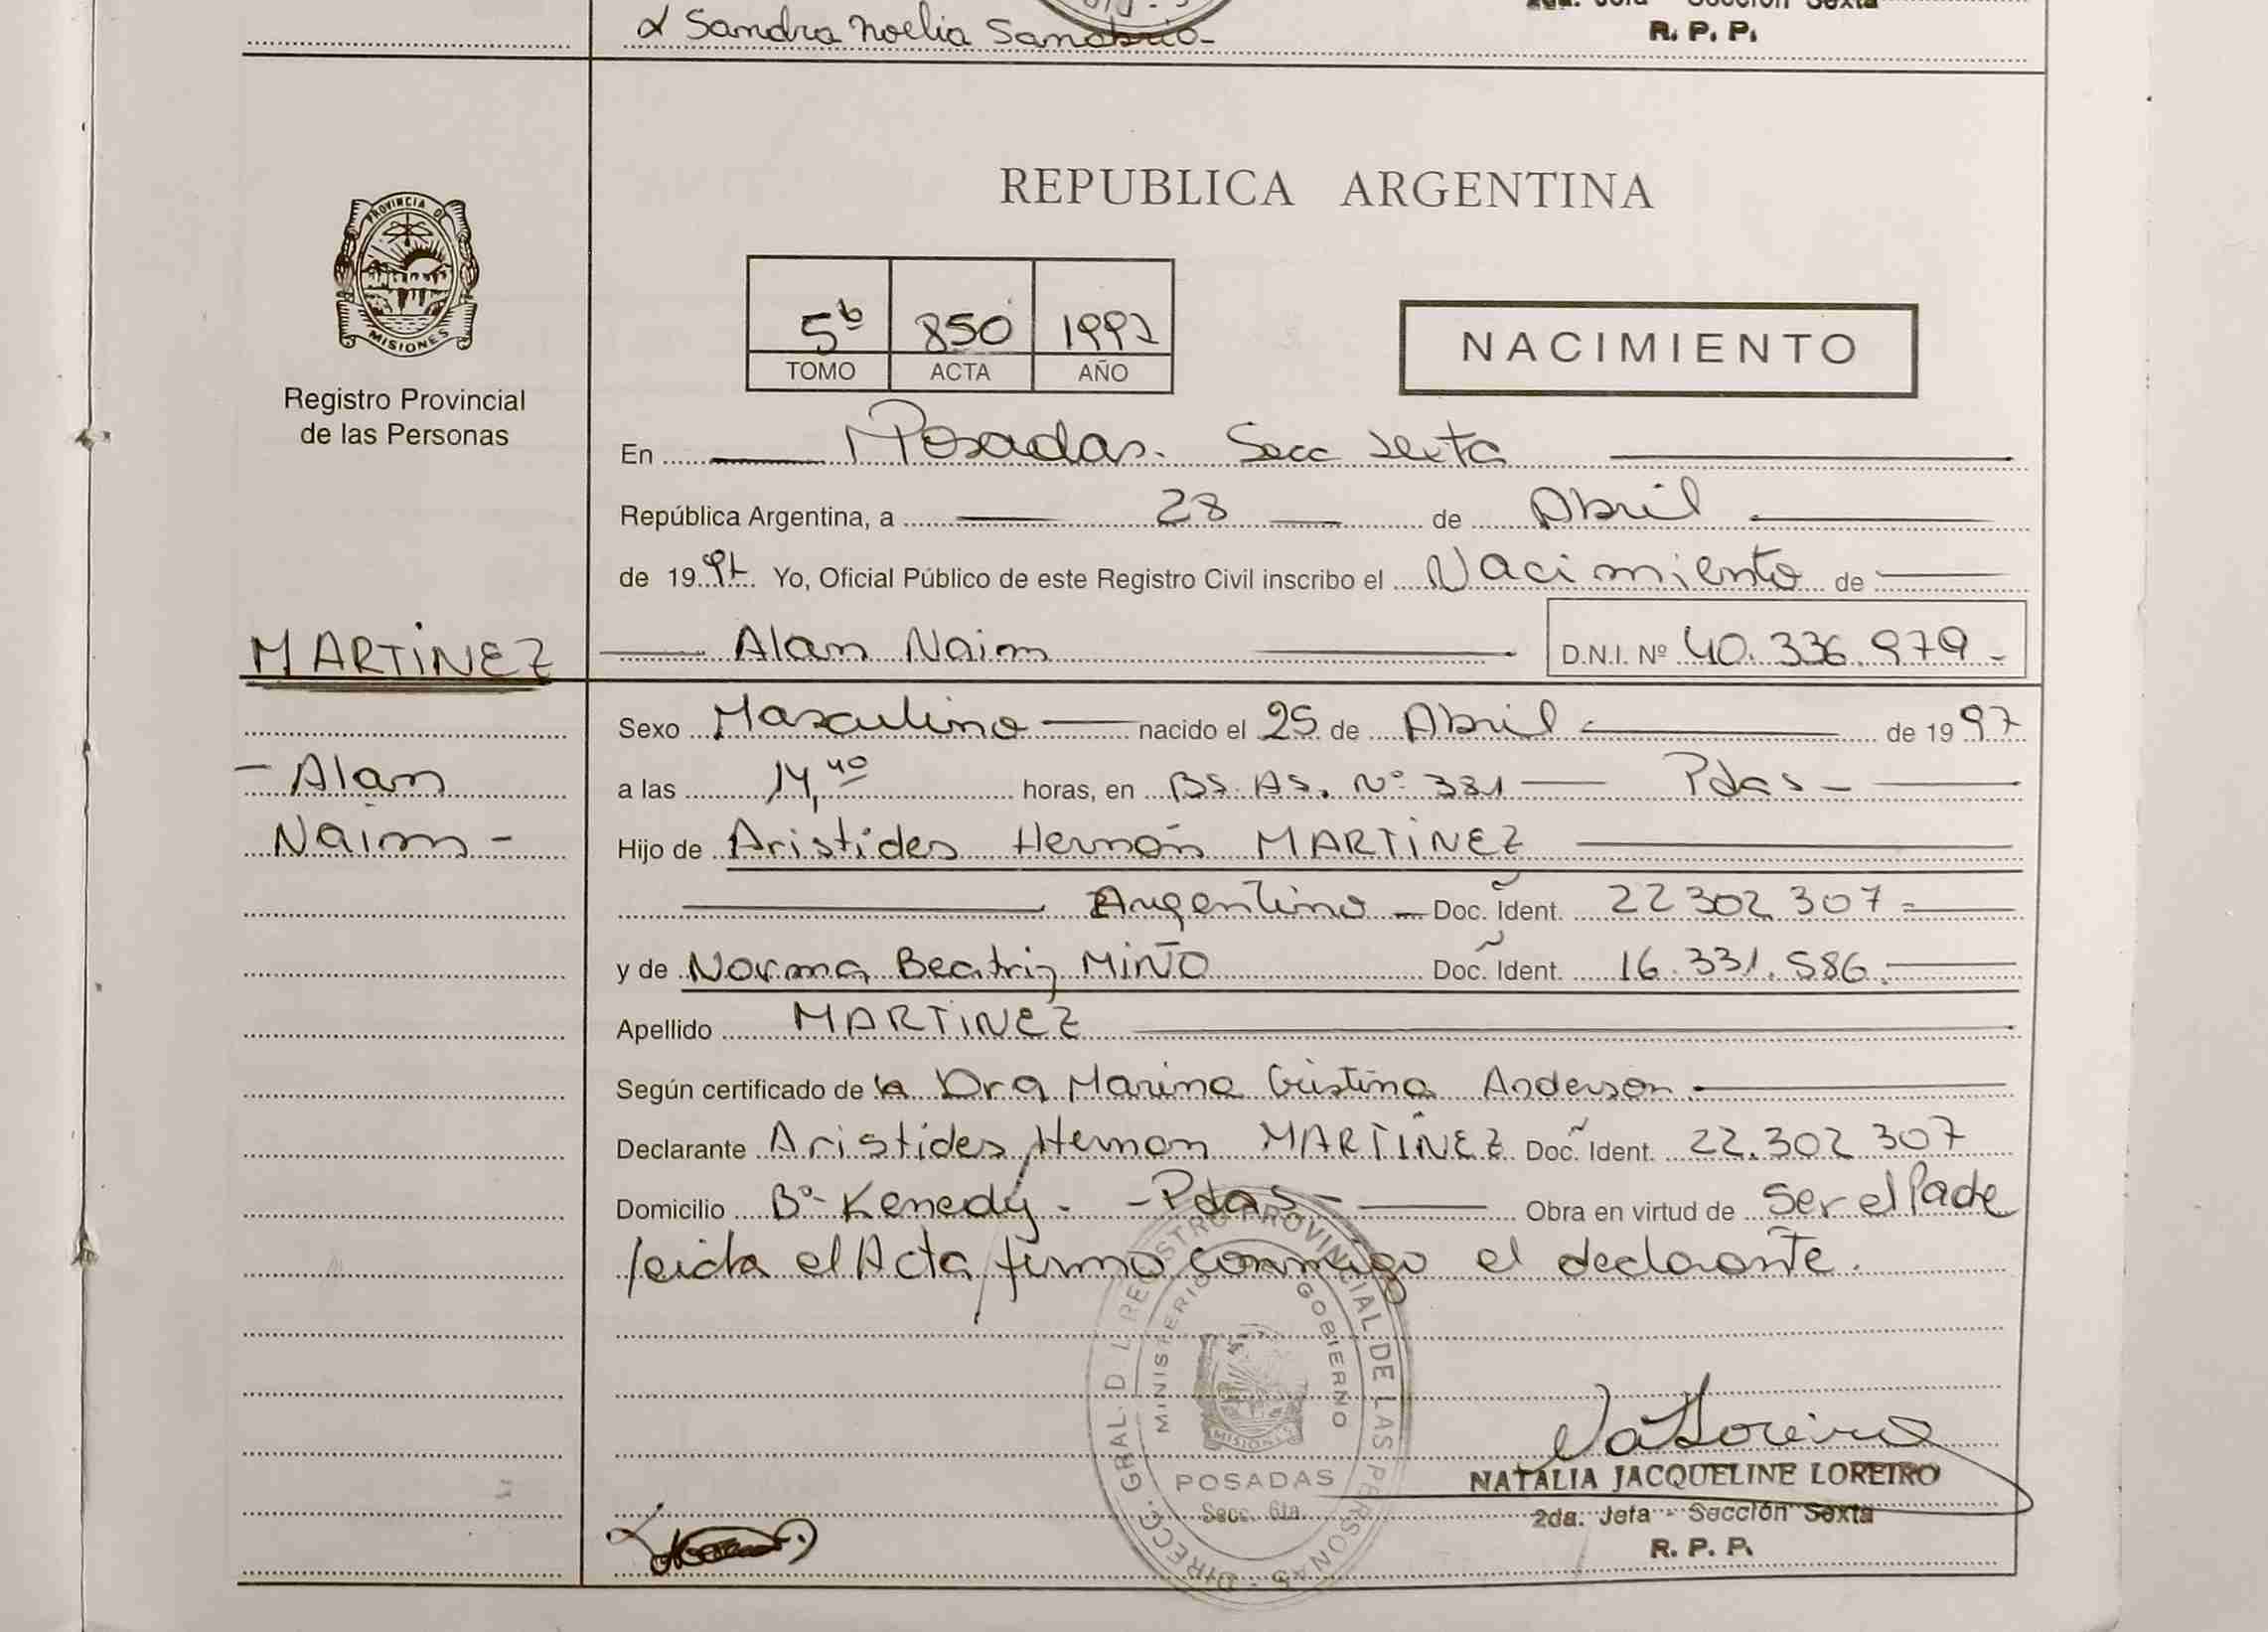 & Sandra Noelia Sanabria-
2da. Jefa - Sección Sexta
R. P. P.
PROVINCIA DE
MISIONES
Registro Provincial
de las Personas
REPUBLICA ARGENTINA
5b 850 1997
TOMO ACTA AÑO
NACIMIENTO
En Posadas. Secc Sexta
República Argentina, a 28 de Abril
de 1997 Yo, Oficial Público de este Registro Civil inscribo el Nacimiento de
MARTINEZ
Alan Naim D.N.I. Nº 40.336.979-
Sexo Masculino nacido el 25 de Abril de 1997
- Alan
a las 14,40 horas, en Bs. As. Nº 331 Pdas-
Naim-
Hijo de Aristides Hernán MARTINEZ
Argentino - Doc. Ident. 22 302 307
y de Norma Beatriz MIÑO Doc. Ident. 16.331.586
Apellido MARTINEZ
Según certificado de la Dra Marina Cristina Anderson
Declarante Aristides Hernan MARTINEZ Doc. Ident. 22.302 307
Domicilio Bº- Kenedy. -Pdas- Obra en virtud de Ser el Padre
leida el Acta, firma conmigo el declarante.
DIRECC. GRAL. D L REGISTRO PROVINCIAL DE LAS PERSONAS
MINISTERIO GOBIERNO
MISIONES
POSADAS
Secc. 6ta
NATALIA JACQUELINE LOREIRO
2da. Jefa - Sección Sexta
R. P. P.